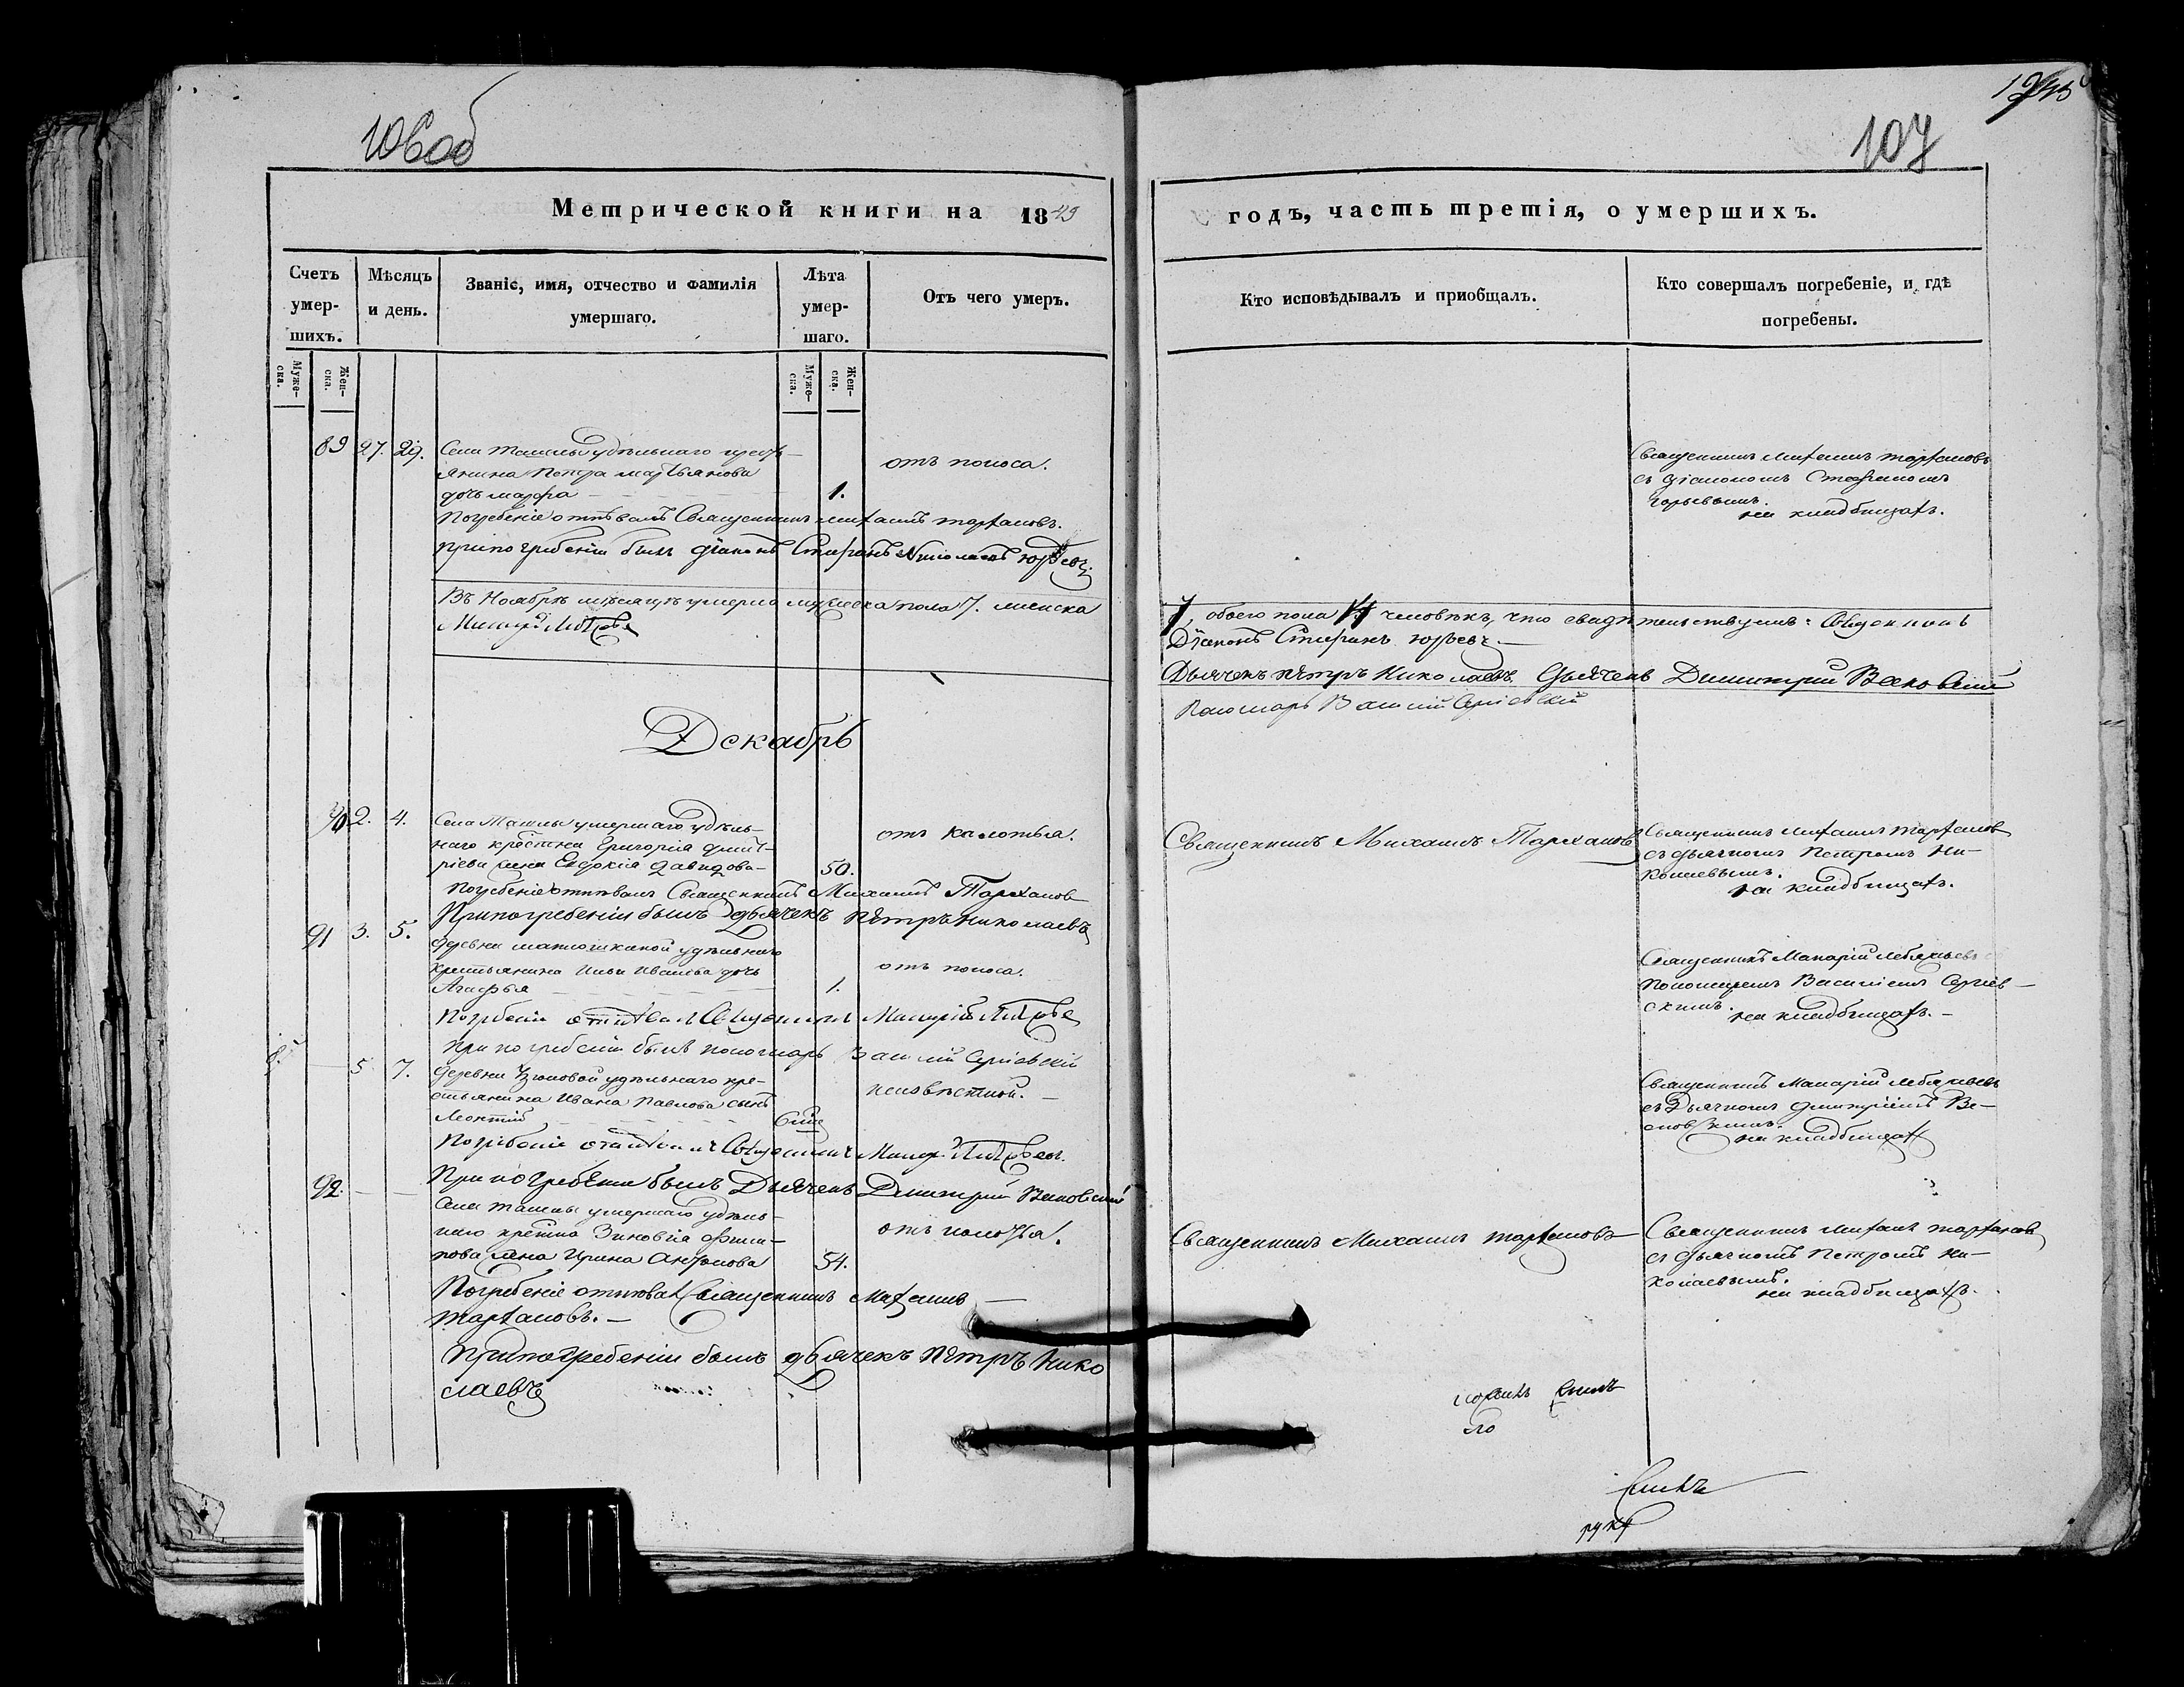 106об
Метрической книги на 1849
Счетъ умер-шихъ.
Мѣсяцъ и день.
Званіе, имя, отчество и фамилія умершаго.
Лѣта умер-шаго.
Отъ чего умеръ.
Муже-ска.
Жен-ска.
Муже-ска.
Жен-ска.
89 27. 29. Села удѣльнаго крестъ-
янина Петра
дочь марфа 1.
отъ поноса.
Погребеніе отпѣвалъ Священникъ михаилъ тарханов.
При погребеніи былъ діаконъ Стефанъ Юрьевъ.
Въ Ноябрѣ мѣсяцѣ умерло мужеска пола 7. женска
Декабрь
90. 2. 4. Села умершаго удѣль-
наго крестна Григорія Дмит-
ріева жена Евдокія Давидова 50.
отъ
Погребеніе отпѣвалъ Священникъ Михаилъ Тархановъ
При погребеніи былъ дьячекъ Петръ Николаевъ
91 3. 5. Деревни удѣльнаго
крестьянина Ильи Иванова дочь
Агафья 1.
отъ поноса.
Погребеніе отпѣвалъ Священникъ Макарій
При погребеніи былъ пономарь Василій Сергіевскій
8. 5 7. Деревни удѣльнаго кре-
стьянина Ивана Павлова сынъ
Леонтій
неизвѣстной.
Погребеніе отпѣвалъ Священникъ
При погребеніи былъ Дьячекъ Димитрій
92. Села умершаго удѣль-
наго крестна Зиновія Филип-
пова жена Ирина Антонова 54.
отъ
Погребеніе отпѣвалъ Священникъ Михаилъ
тархановъ.
При погребеніи былъ дьячекъ Петръ Нико
лаевъ
107
годъ, часть третія, о умершихъ.
Кто исповѣдывалъ и приобщалъ.
Кто совершалъ погребеніе, и гдѣ погребены.
Священникъ михаилъ тархановъ
съ діакономъ Стефаномъ
Юрьевымъ.
на кладбищахъ.
7, обоего пола 14 человѣкъ, что свидѣтельствуемъ: Священникъ
Діаконъ Стефанъ Юрьевъ.
Дьячекъ Петръ Николаевъ, Дьячекъ Димитрій
Пономарь Василій Сергіевскій
Священникъ Михаилъ Тархановъ
Священникъ михаилъ тархановъ
съ дьячкомъ Петромъ Ни-
колаевымъ.
на кладбищахъ.
Священникъ Макарій
Пономаремъ Василіемъ Сергіев-
скимъ.
на кладбищахъ.
Священникъ Макарій
съ Дьячкомъ Димитріемъ
на кладбищахъ
Священникъ Михаилъ тархановъ
Священникъ михаилъ тархановъ
съ дьячкомъ Петромъ Ни-
колаевымъ.
на кладбищахъ.
руку